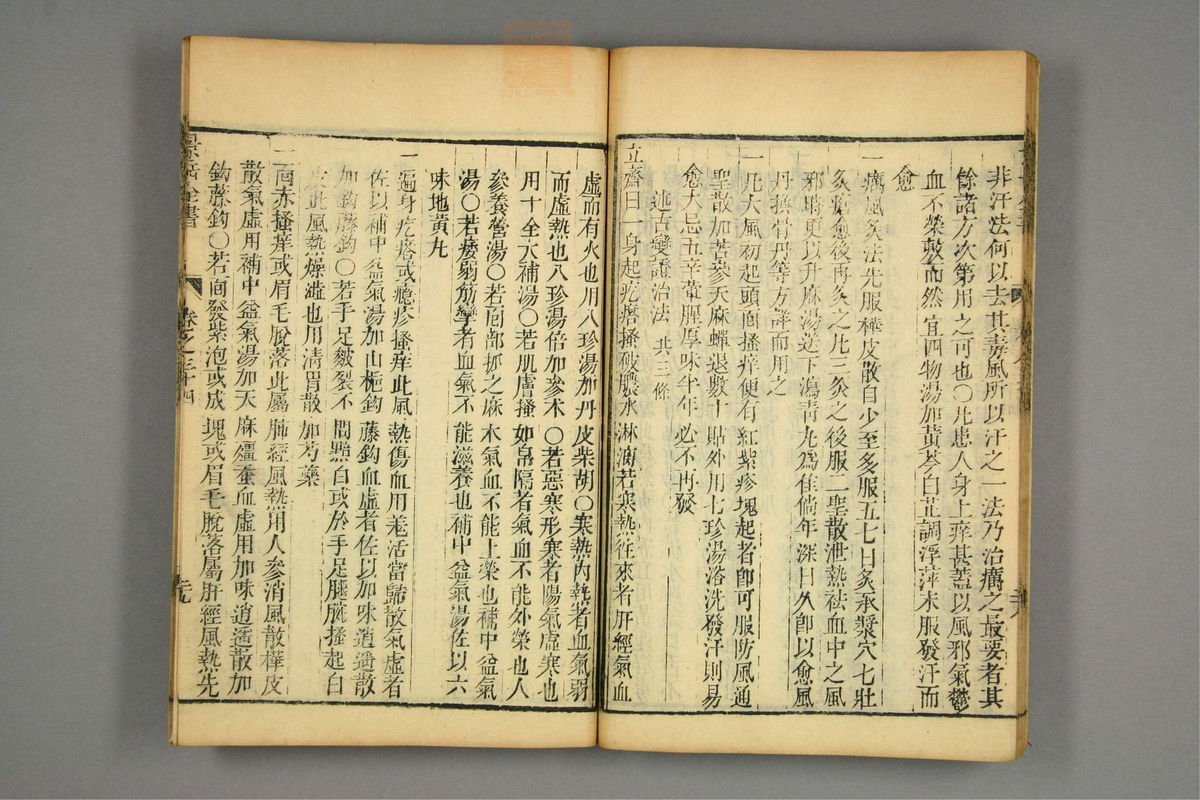 非汗法何以去其毒風所以汗之一法乃治癘之最要者其
餘諸方次第用之可也〇凡患人身上痒甚蓋以風邪氣鬱
血不榮敷而然宜四物湯加黃芩白芷調浮萍末服發汗而
愈
一癘風灸法先服樺皮散自少至多服五七日灸承漿穴七壯
灸瘡愈後再灸之凡三灸之後服二聖散泄熱祛血中之風
邪時更以升麻湯送下瀉青丸爲佳倘年深日久卽以愈風
丹換骨丹等方詳而用之
一凡大風初起頭面搔痒便有紅紫疹塊起者卽可服防風通
聖散加苦參天麻蟬退數十貼外用七珍湯浴洗發汗則易
愈大忌五辛葷腥厚味半年必不再發
述古變證治法 共三條
立齋曰一身起疙瘩搔破膿水淋漓若寒熱往來者肝經氣血
虛而有火也用八珍湯加丹皮柴胡〇寒熱內熱者血氣弱
而虛熱也八珍湯倍加參术〇若惡寒形寒者陽氣虛寒也
用十全大補湯〇若肌膚搔如帛隔者氣血不能外榮也人
參養營湯〇若面部抓之麻木氣血不能上榮也補中益氣
湯〇若痿弱筋攣者血氣不能滋養也補中益氣湯佐以六
味地黃丸
一遍身疙瘩或癮疹搔痒此風熱傷血用羌活當歸散氣虛者
佐以補中益氣湯加山梔鈎藤鈎血虛者佐以加味逍遙散
加鈎藤鈎〇若手足皴裂不問黑白或於手足腿腕搔起白
皮此風熱燥澁也用清胃散加芍藥
一面赤搔痒或眉毛脫落此屬肺經風熱用人參消風散樺皮
散氣虛用補中益氣湯加天麻殭蠶血虛用加味逍遙散加
鈎藤鈎〇若面發紫泡或成塊或眉毛脫落屬肝經風熱先
景岳全書
卷之三十四